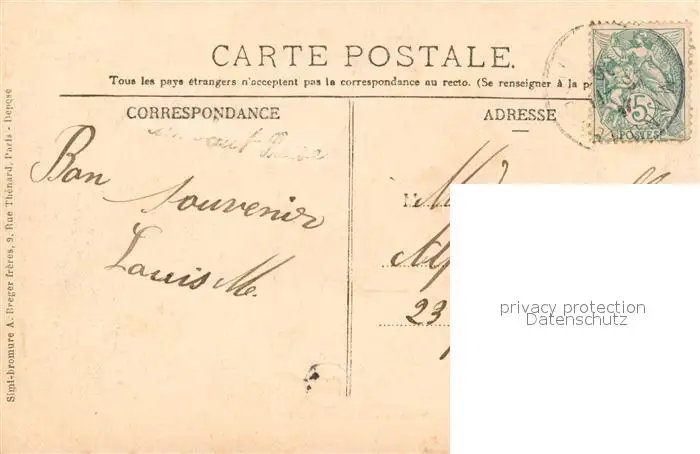 CARTE POSTALE.
Tous les pays étrangers n'acceptent pas la correspondance au recto. (Se renseigner à la p
CORRESPONDANCE
ADRESSE
Bon
souvenir
Louis M.
23
5c
POSTES
privacy protection
Datenschutz
Simi-bromure A. Breger frères, 9, Rue Thénard, Paris - Déposé